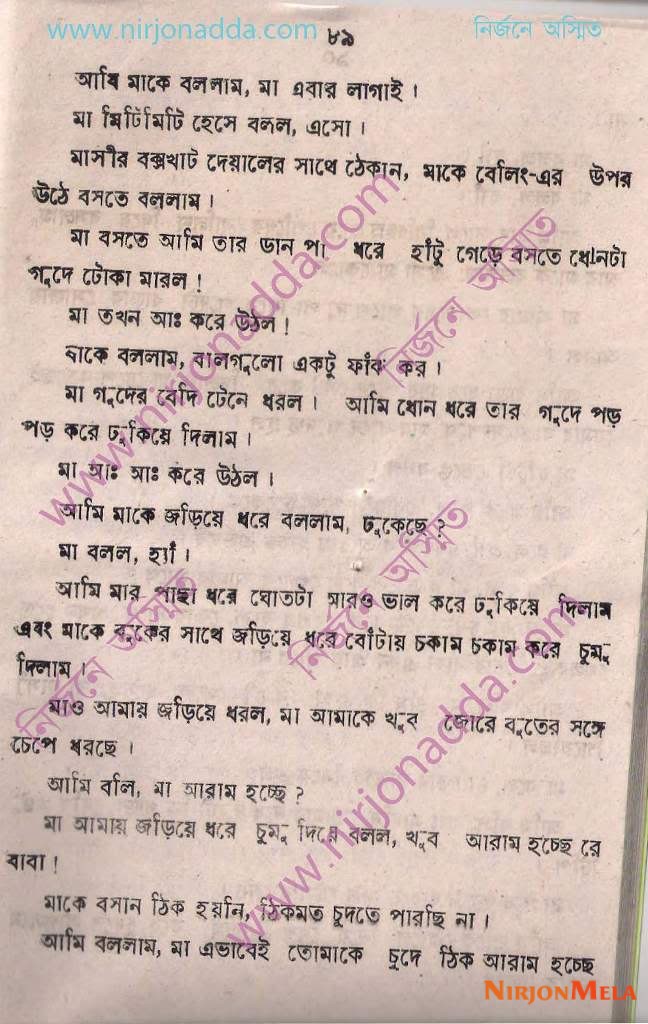 www.nirjonadda.com ৮৯ নির্জনে অস্মিত
আমি মাকে বললাম, মা এবার লাগাই ।
মা মিটিমিটি হেসে বলল, এসো ।
মাসীর বক্সখাট দেয়ালের সাথে ঠেকান, মাকে বেলিং-এর উপর
উঠে বসতে বললাম ।
মা বসতে আমি তার ডান পা ধরে হাঁটু গেড়ে বসতে ধোনটা
গুদে টোকা মারল !
মা তখন আঃ করে উঠল !
মাকে বললাম, বালগুলো একটু ফাঁক কর ।
মা গুদের বেদি টেনে ধরল । আমি ধোন ধরে তার গুদে পড়
পড় করে ঢুকিয়ে দিলাম ।
মা আঃ আঃ করে উঠল ।
আমি মাকে জড়িয়ে ধরে বললাম, ঢুকেছে ?
মা বলল, হ্যাঁ ।
আমি মার পাছা ধরে ধোতটা আরও ভাল করে ঢুকিয়ে দিলাম
এবং মাকে বুকের সাথে জড়িয়ে ধরে বোঁটায় চকাম চকাম করে চুমু
দিলাম ।
মাও আমায় জড়িয়ে ধরল, মা আমাকে খুব জোরে বুতের সঙ্গে
চেপে ধরছে ।
আমি বলি, মা আরাম হচ্ছে ?
মা আমায় জড়িয়ে ধরে চুমু দিয়ে বলল, খুব আরাম হচ্ছে রে
বাবা !
মাকে বসান ঠিক হয়নি, ঠিকমত চুদতে পারছি না ।
আমি বললাম, মা এভাবেই তোমাকে চুদে ঠিক আরাম হচ্ছে
NIRJONMELA
www.nirjonadda.com
নির্জনে অস্মিত
নির্জনে অস্মিত
নির্জনে অস্মিত
www.nirjonadda.com